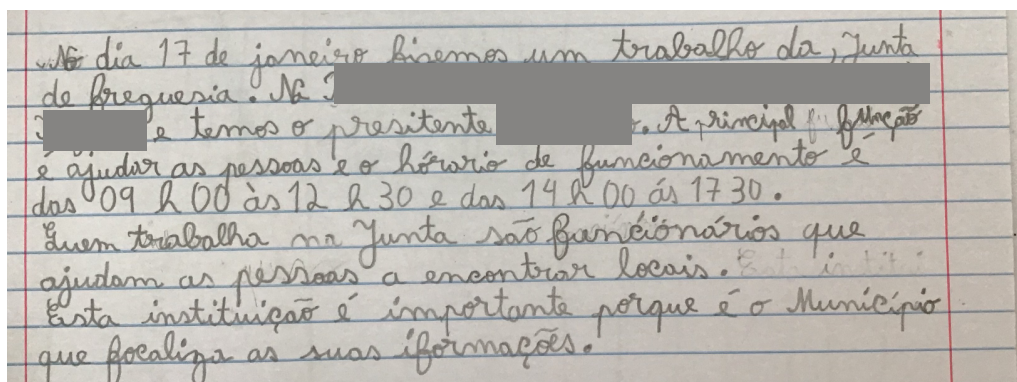 No dia 17 de janeiro fizemos um trabalho da, Junta
de freguesia. Na
e temos o presitente . A principal função
é ajudar as pessoas e o hórario de funcionamento é
das 09 h 00 às 12 h 30 e das 14 h 00 ás 17 30.
Quem trabalha na Junta são funciónários que
ajudam as pessoas a encontrar locais.
Esta instituição é importante porque é o Município
que focaliza as suas iformações.